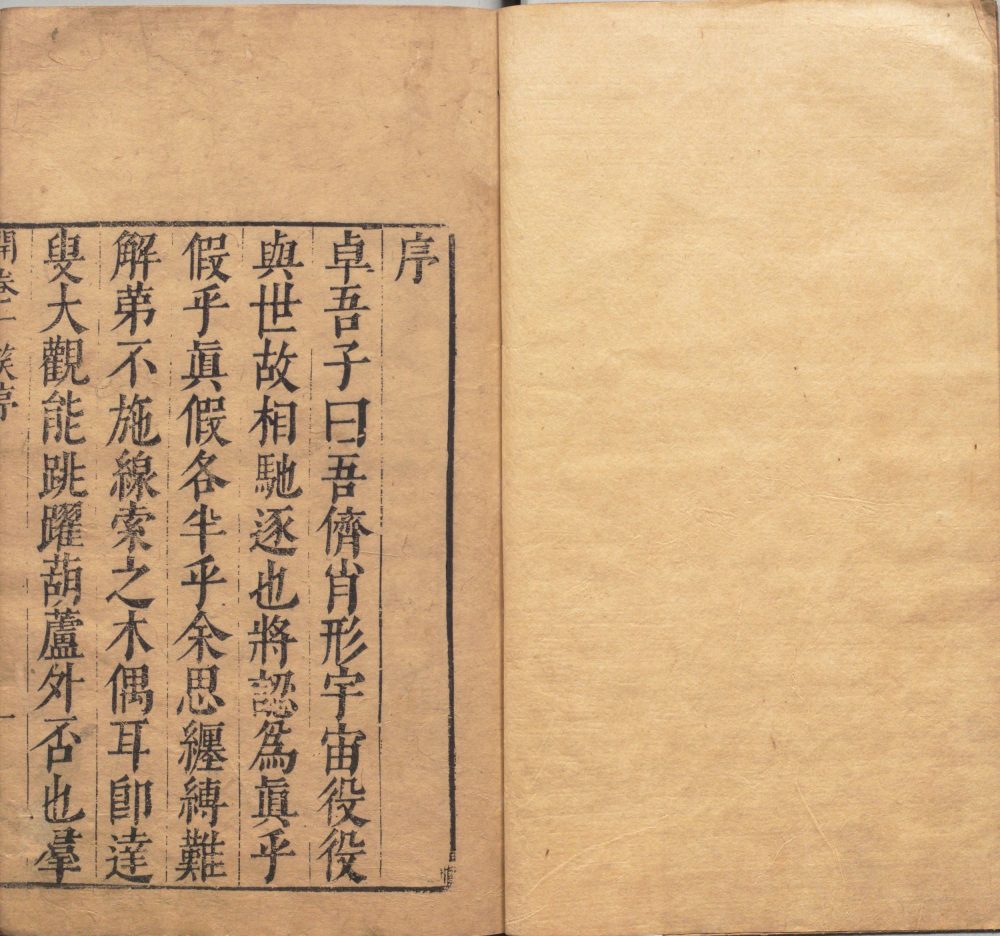 序
卓吾子曰吾儕肖形宇宙役役
與世故相馳逐也將認爲眞乎
假乎眞假各半乎余思纏縛難
解第不施線索之木偶耳卽達
叟大觀能跳躍葫蘆外否也羣
開卷一
序
一